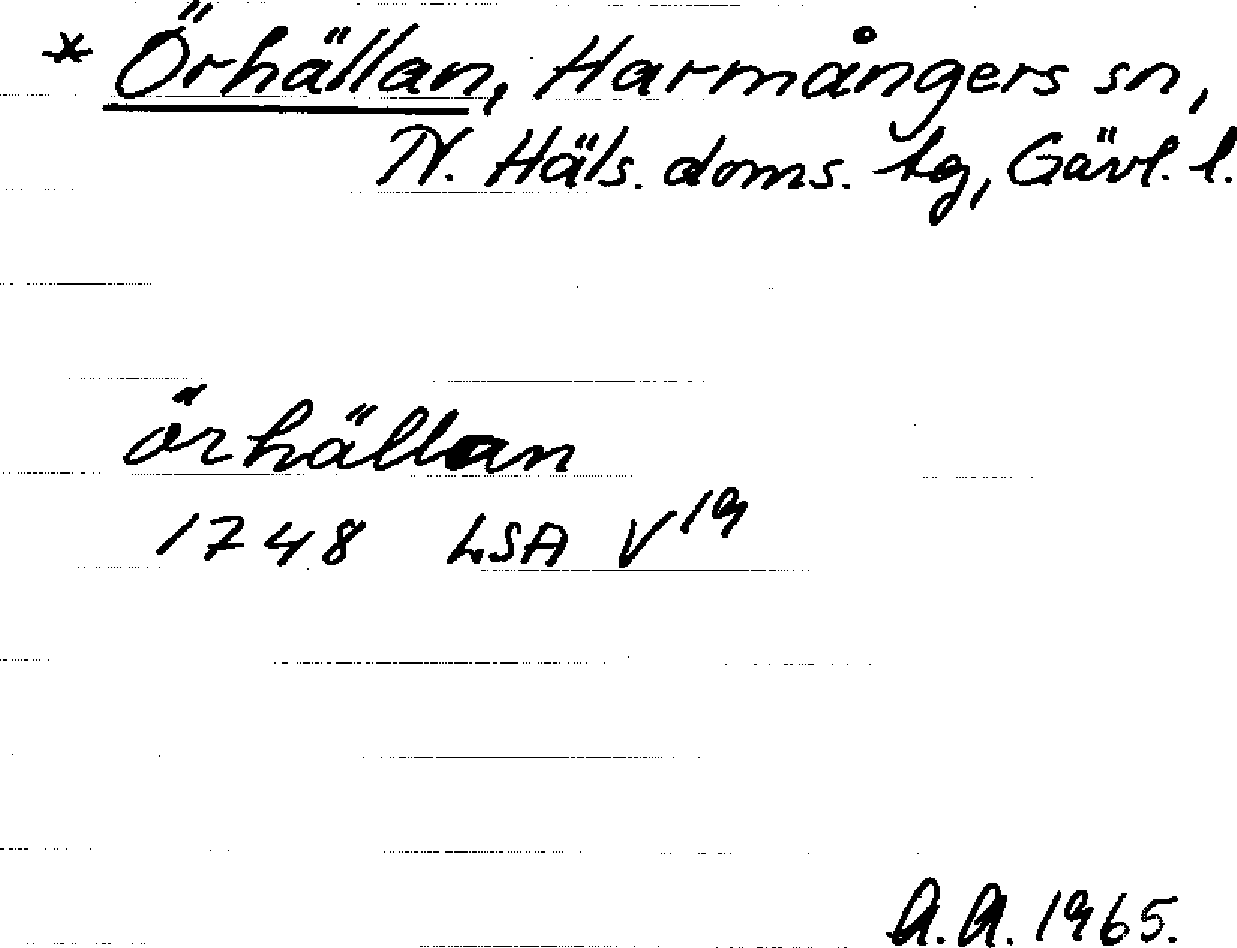 * Örhällan, Harmångers sn,
N. Häls. doms. tg, Gävl. l.
örhällan
1748 LSA V¹⁹
A.A. 1965.